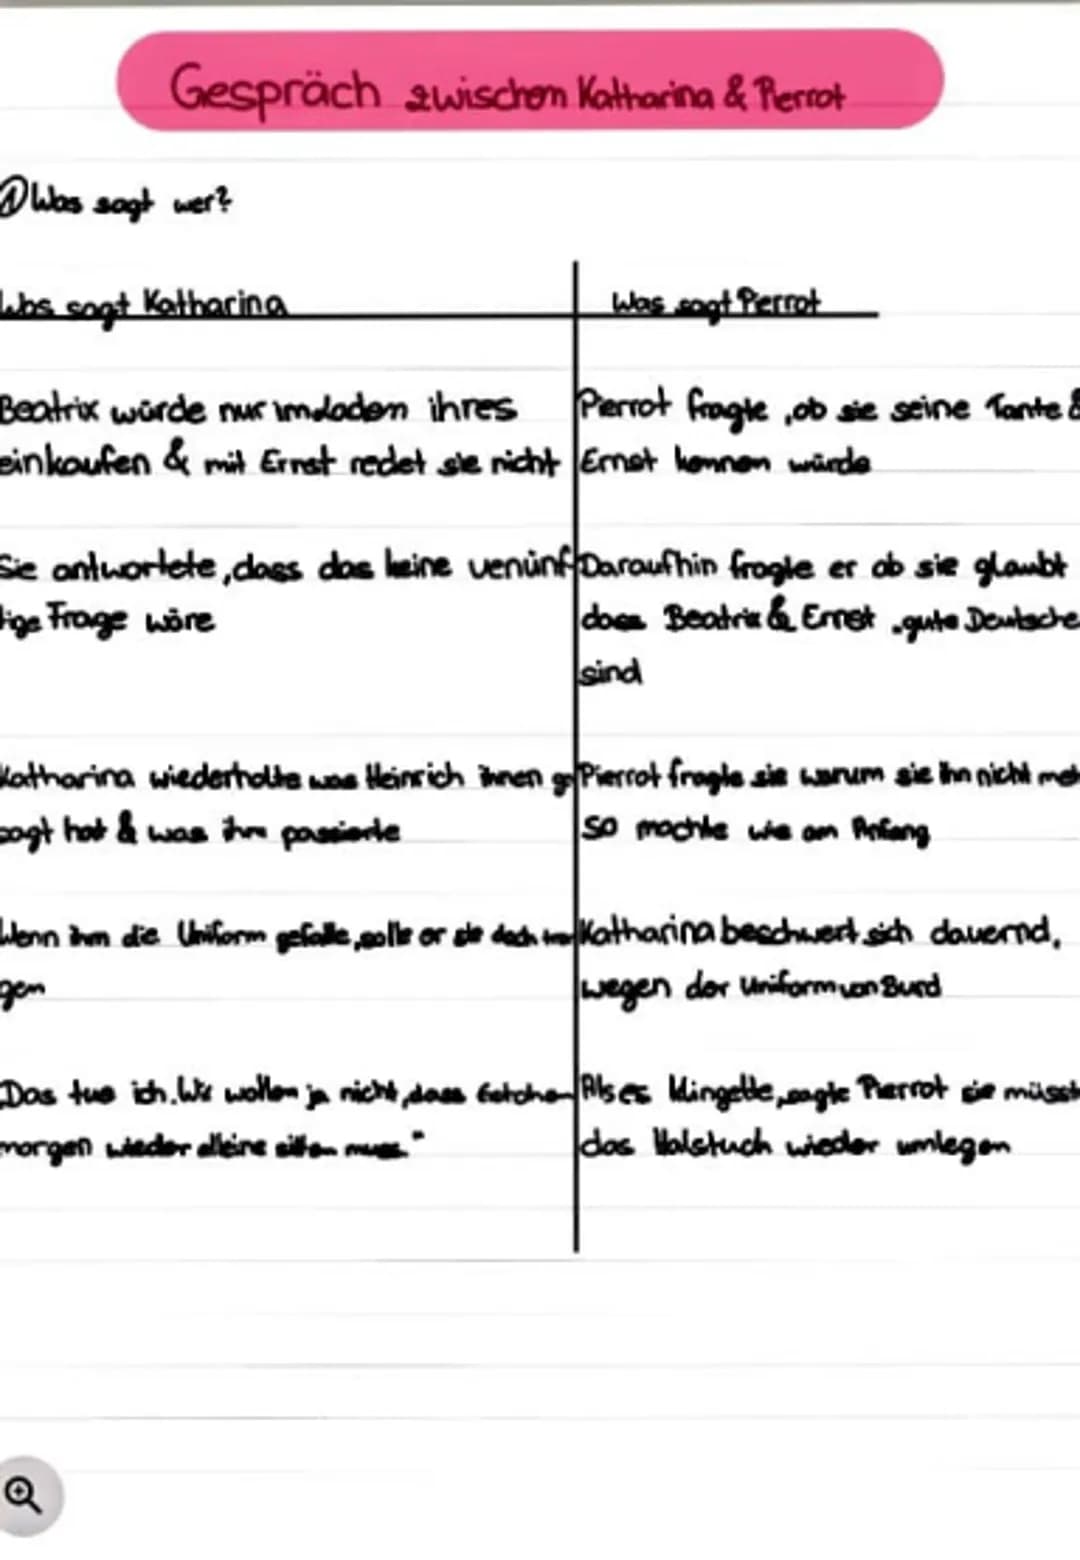 Gespräch zwischen Katharina & Pierrot
① Was sagt wer?
Was sagt Katharina
Was sagt Pierrot
Beatrix würde nur im laden ihres
einkaufen & mit Ernst redet sie nicht
Perrot fragte, ob sie seine Tante &
Ernst kennen würde
Sie antwortete, dass das keine venünf
tige Frage wäre
Daraufhin fragte er ob sie glaubt
dass Beatrix & Ernst „gute Deutsche
sind
Katharina wiederholte was Heinrich ihnen ge
sagt hat & was ihm passierte
Pierrot fragte sie warum sie ihn nicht meh
so mochte wie am Anfang
Wenn ihm die Uniform gefalle, solle er sie doch tra
gen
Katharina beschwert sich dauernd,
wegen der Uniform von Burd
Das tue ich. Wir wollen ja nicht, dass
morgen wieder alleine sitzen muss."
Als es klingelte, sagte Pierrot sie müsst
das Halstuch wieder umlegen